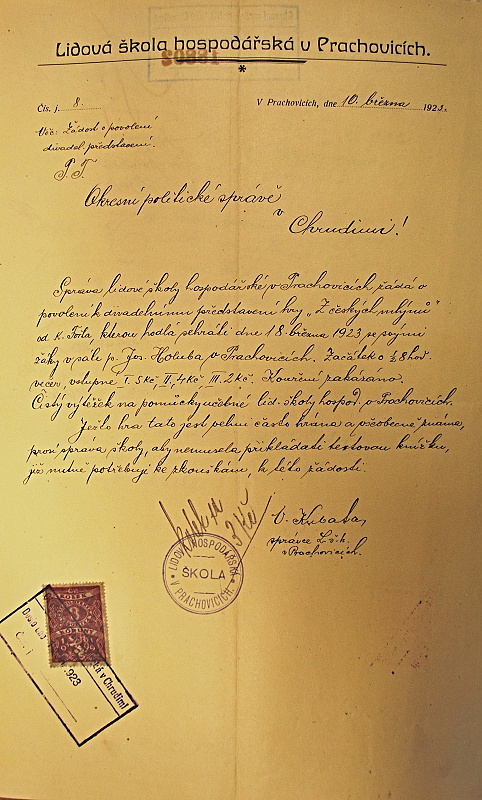 Lidová škola hospodářská v Prachovicích.
*
Čís. j. 8. V Prachovicích, dne 10. března 1923.
Věc: Žádost o povolení
divadel. představení.
P. T.
Okresní politické správě
v
Chrudimi!
Správa lidové školy hospodářské v Prachovicích žádá o
povolení k divadelnímu představení hry „Z českých mlýnů"
od K. Fořta, kterou hodlá sehráti dne 18. března 1923 se svými
žáky v sále p. Jos. Holuba v Prachovicích. Začátek o ½8 hod.
večer, vstupné I. 5 Kč II. 4 Kč III. 2 Kč. Kouření zakázáno.
Čistý výtěžek na pomůcky učebné lid. školy hospod. v Prachovicích.
Ježto hra tato jest velmi často hrána a všeobecně známa,
prosí správa školy, aby nemusela přikládati textovou knížku,
již nutně potřebují ke zkouškám, k této žádosti.
V. Kubata,
správce L. š. h.
v Prachovicích.
3 Kč
LIDOVÁ HOSPODÁŘSKÁ
ŠKOLA
V PRACHOVICÍCH
v Chrudimi
1923